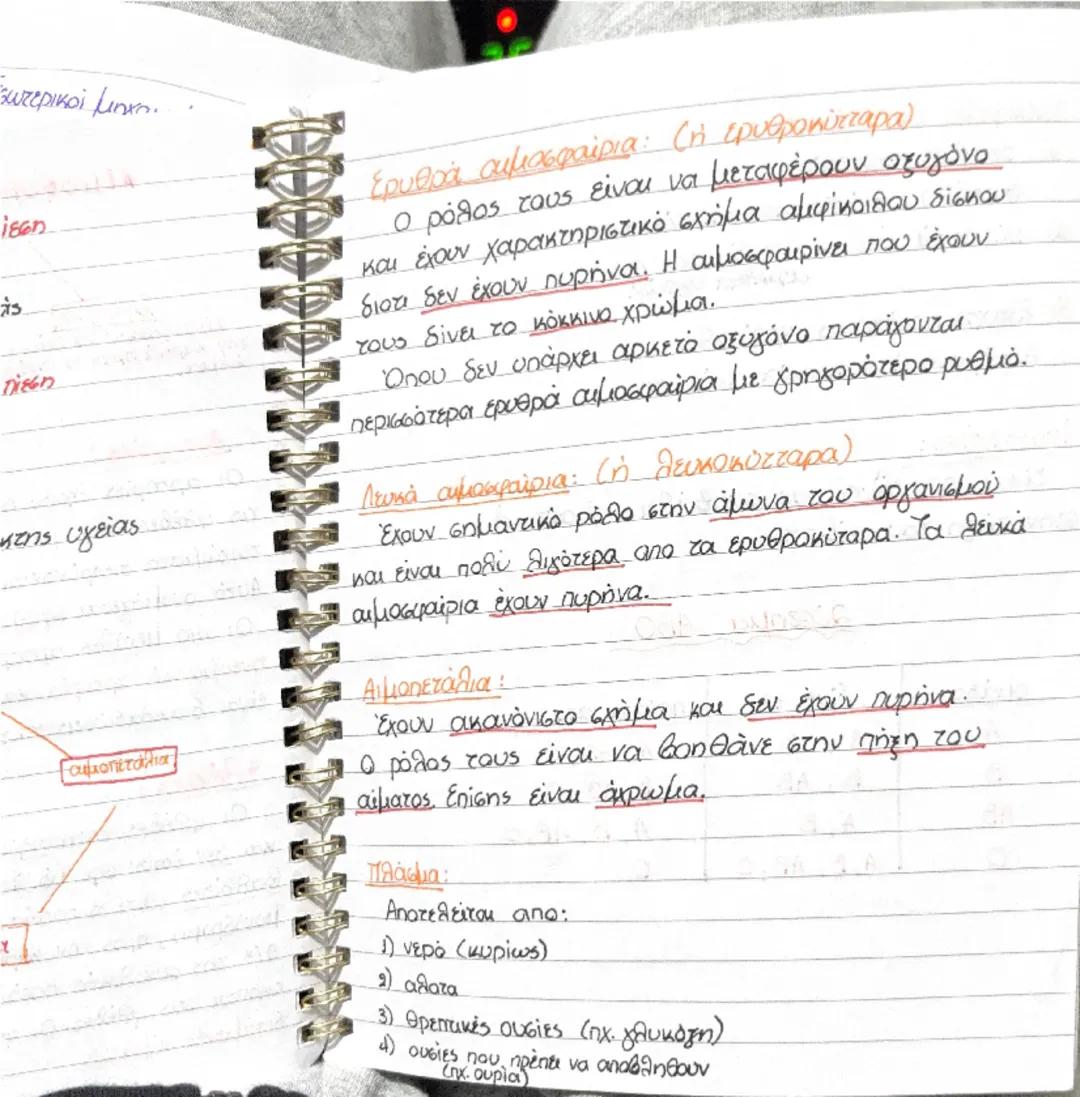 Εσωτερικοί
ίεση
πίεση
υγείας
αιμοπετάλια
Ερυθρά αιμοσφαίρια: (ή ερυθροκύτταρα)
Ο ρόλος τους είναι να μεταφέρουν οξυγόνο
και έχουν χαρακτηριστικό σχήμα αμφίκοιλου δίσκου
διοτι δεν έχουν πυρήνα. Η αιμοσφαιρίνει που έχουν
τους δίνει το κόκκινο χρώμα.
Όπου δεν υπάρχει αρκετό οξυγόνο παράγονται
περισσότερα ερυθρά αιμοσφαίρια με γρηγορότερο ρυθμό.
Λευκά αιμοσφαίρια: (ή λευκοκύτταρα)
Έχουν σημαντικό ρόλο στην άμυνα του οργανισμού
και είναι πολύ λιγότερα απο τα ερυθροκύταρα. Τα λευκά
αιμοσφαίρια έχουν πυρήνα.
Αιμοπετάλια:
Έχουν ακανόνιστο σχήμα και δεν έχουν πυρήνα.
Ο ρόλος τους είναι να βοηθάνε στην πήξη του
αίματος. Επίσης είναι άχρωμα.
Πλάσμα:
Αποτελείται απο:
1) νερό (κυρίως)
2) αλατα
3) θρεπτικές ουσίες (πχ. γλυκόζη)
4) ουσίες που πρέπει να αποβληθουν
(πχ. ουρία)